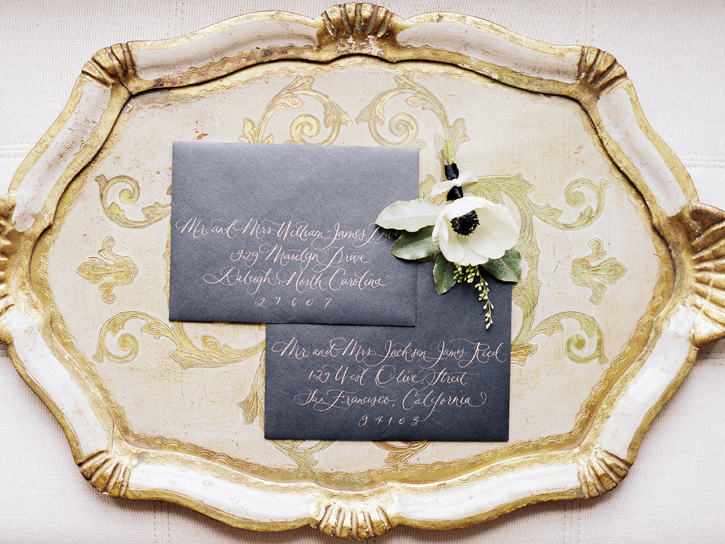 Mr and Mrs William James
929 Marilyn Drive
Raleigh, North Carolina
27607
Mr and Mrs Jackson James Reed
129 West Olive Street
San Francisco, California
94103